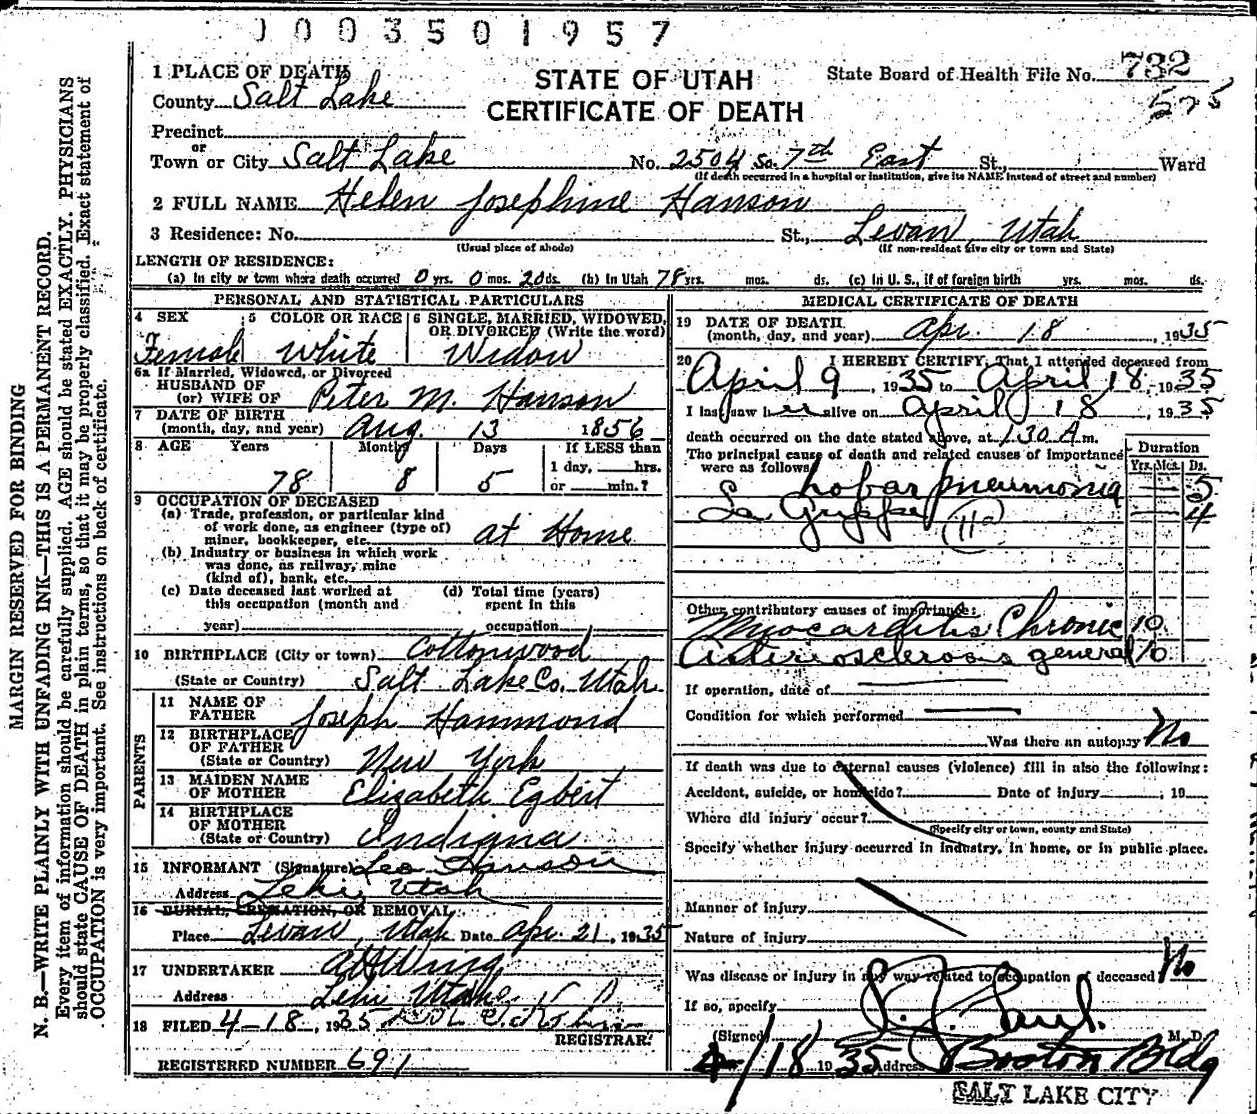 0003501957
1 PLACE OF DEATH
STATE OF UTAH
CERTIFICATE OF DEATH
State Board of Health File No. 732
575
County Salt Lake
Precinct
or
Town or City Salt Lake No. 2504 So. 7th East St., Ward
(If death occurred in a hospital or institution, give its NAME instead of street and number)
2 FULL NAME Helen Josephine Hanson
3 Residence: No. St., Levan Utah
(Usual place of abode) (If non-resident give city or town and State)
LENGTH OF RESIDENCE:
(a) In city or town where death occurred 0 yrs. 0 mos. 20 ds. (b) In Utah 78 yrs. mos. ds. (c) In U.S., if of foreign birth yrs. mos. ds.
PERSONAL AND STATISTICAL PARTICULARS
4 SEX 5 COLOR OR RACE 6 SINGLE, MARRIED, WIDOWED, OR DIVORCED (Write the word)
Female White Widow
6a If Married, Widowed, or Divorced
HUSBAND OF
(or) WIFE OF Peter M. Hanson
7 DATE OF BIRTH
(month, day, and year) Aug. 13 1856
8 AGE Years Months Days If LESS than
1 day, hrs.
78 8 5 or min.?
9 OCCUPATION OF DECEASED
(a) Trade, profession, or particular kind
of work done, as engineer (type of)
miner, bookkeeper, etc. at Home
(b) Industry or business in which work
was done, as railway, mine
(kind of), bank, etc.
(c) Date deceased last worked at (d) Total time (years)
this occupation (month and spent in this
year) occupation
10 BIRTHPLACE (City or town) Cottonwood
(State or Country) Salt Lake Co. Utah
PARENTS
11 NAME OF
FATHER Joseph Hammond
12 BIRTHPLACE
OF FATHER
(State or Country) New York
13 MAIDEN NAME
OF MOTHER Elizabeth Egbert
14 BIRTHPLACE
OF MOTHER
(State or Country) Indiana
15 INFORMANT (Signature) Leo Hanson
Address Lehi, Utah
16 BURIAL, CREMATION, OR REMOVAL
Place Levan, Utah Date Apr. 21, 1935
17 UNDERTAKER A H Wing
Address Lehi Utah
18 FILED 4-18, 1935
REGISTRAR.
REGISTERED NUMBER 691
MEDICAL CERTIFICATE OF DEATH
19 DATE OF DEATH
(month, day, and year) Apr. 18, 1935
20 I HEREBY CERTIFY, That I attended deceased from
April 9, 1935 to April 18, 1935
I last saw her alive on April 18, 1935
death occurred on the date stated above, at 1:30 A.m.
The principal cause of death and related causes of importance
were as follows
Duration
Yrs. Mos. Ds.
Lobar pneumonia 5
La Grippe 4
(11a)
Other contributory causes of importance:
Myocarditis Chronic 10
Arteriosclerosis general 10
If operation, date of
Condition for which performed
Was there an autopsy No
If death was due to external causes (violence) fill in also the following:
Accident, suicide, or homicide? Date of injury , 19
Where did injury occur?
(Specify city or town, county and State)
Specify whether injury occurred in industry, in home, or in public place.
Manner of injury
Nature of injury
Was disease or injury in any way related to occupation of deceased? No
If so, specify
(Signed) Paul. M. D.
4/18 1935 Address Boston Bldg
SALT LAKE CITY
MARGIN RESERVED FOR BINDING
N. B.—WRITE PLAINLY WITH UNFADING INK—THIS IS A PERMANENT RECORD.
Every item of information should be carefully supplied. AGE should be stated EXACTLY. PHYSICIANS
should state CAUSE OF DEATH in plain terms, so that it may be properly classified. Exact statement of
OCCUPATION is very important. See instructions on back of certificate.